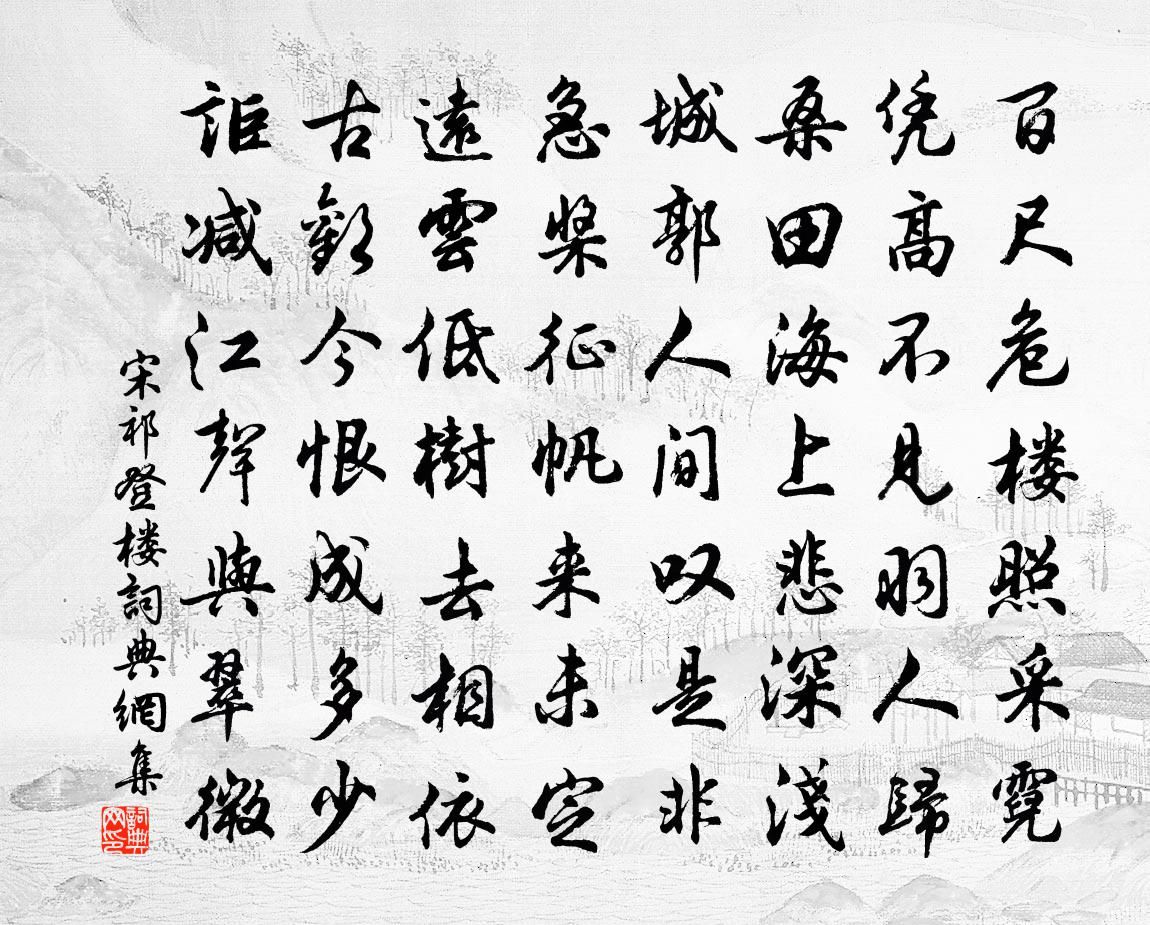 百尺危楼照采霓
凭高不见羽人归
桑田海上悲深浅
城郭人间叹是非
急桨征帆来未定
遠雲低樹去相依
古歡今恨成多少
詎减江聲與翠微
宋祁登楼詞典網集
詞典网印